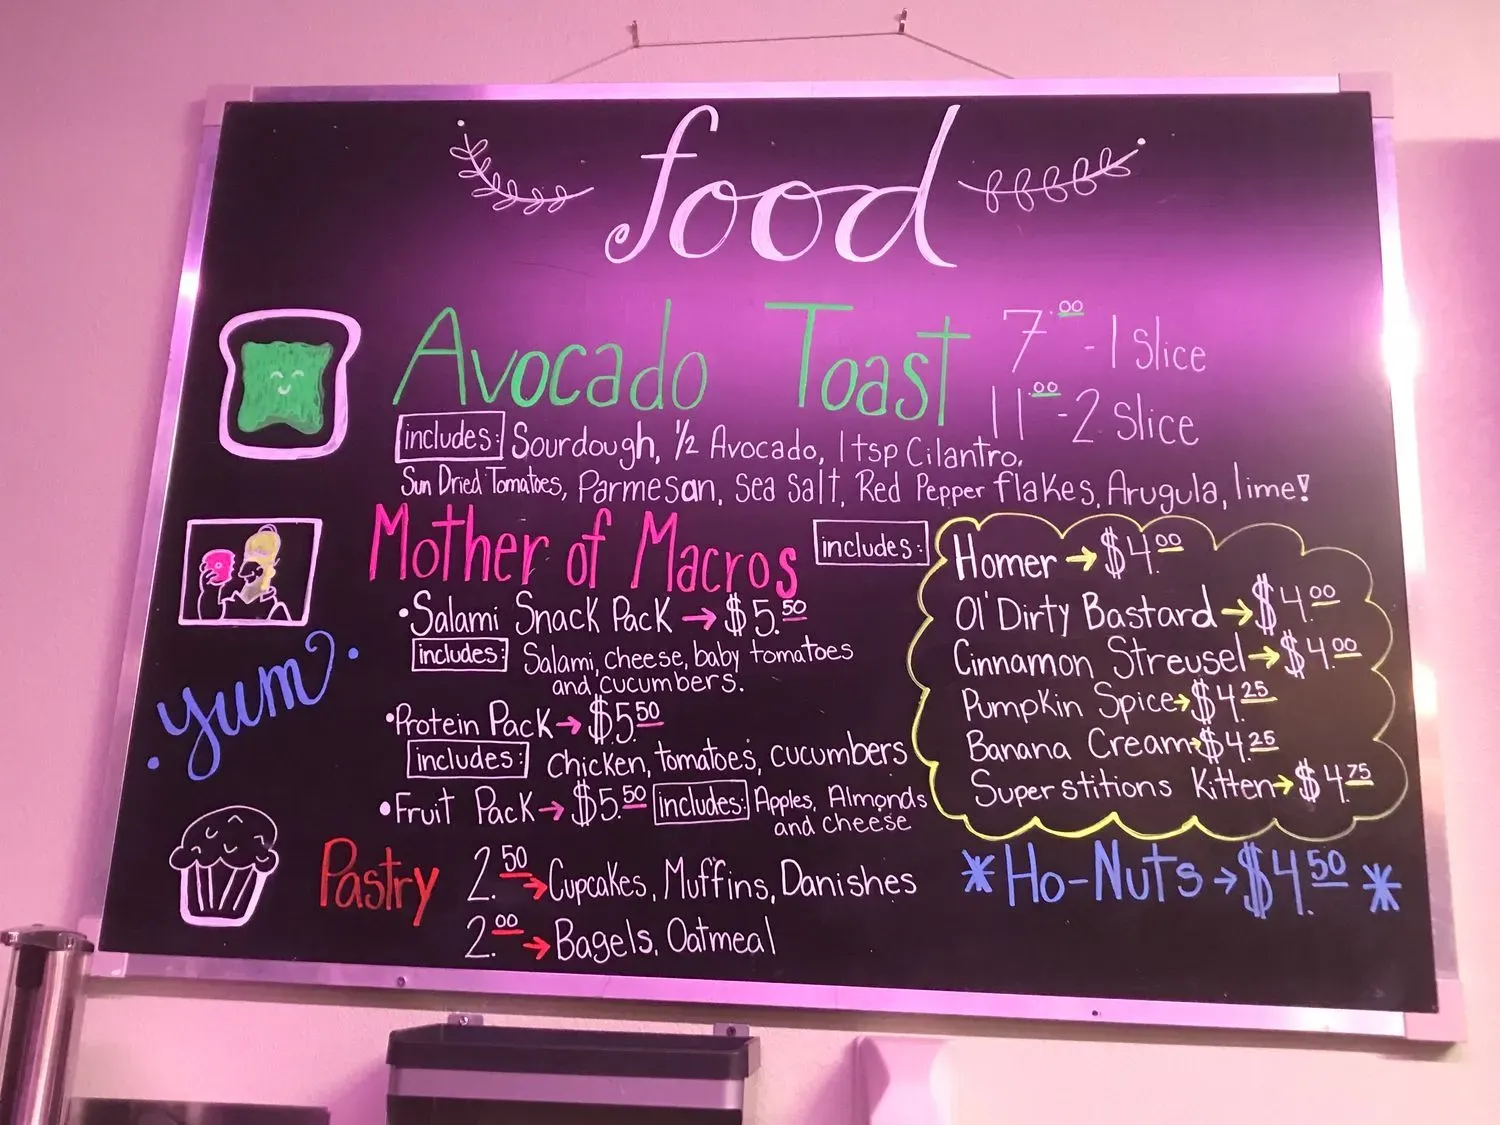 food
Avocado Toast 7.00 - 1 Slice
11.00 - 2 Slice
includes: Sourdough, 1/2 Avocado, 1 tsp Cilantro,
Sun Dried Tomatoes, Parmesan, Sea Salt, Red Pepper flakes, Arugula, lime!
Mother of Macros
• Salami Snack Pack → $5.50
includes: Salami, cheese, baby tomatoes
and cucumbers.
• Protein Pack → $5.50
includes: Chicken, tomatoes, cucumbers
• Fruit Pack → $5.50 includes: Apples, Almonds
and cheese
includes:
Homer → $4.00
Ol' Dirty Bastard → $4.00
Cinnamon Streusel → $4.00
Pumpkin Spice → $4.25
Banana Cream → $4.25
Superstitions Kitten → $4.75
* Ho-Nuts → $4.50 *
Yum
Pastry 2.50 → Cupcakes, Muffins, Danishes
2.00 → Bagels, Oatmeal